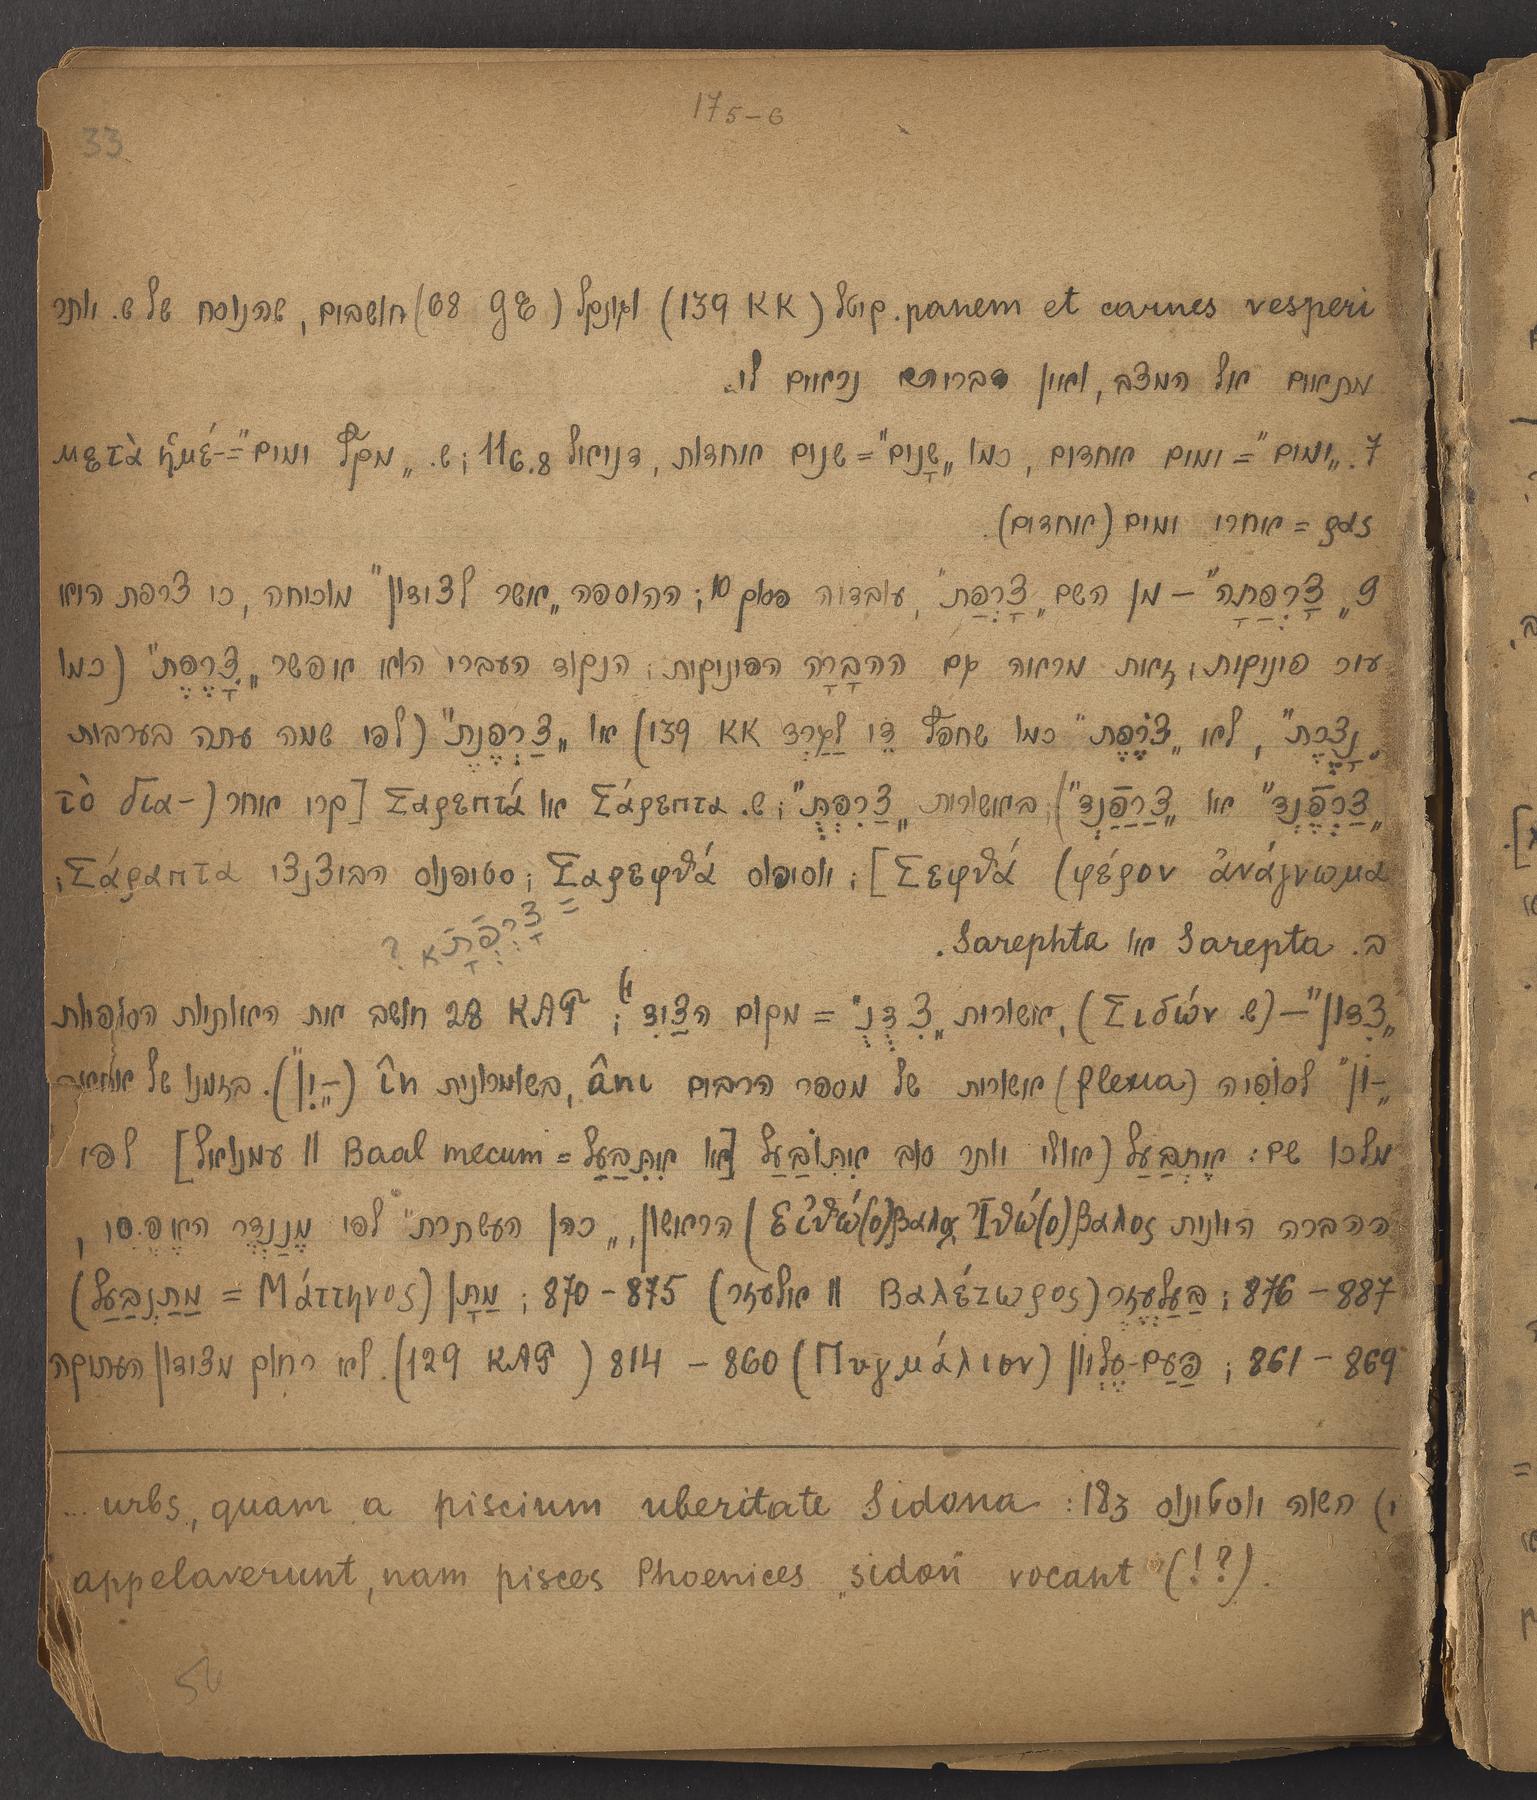 17 5-6
33
panem et carnes vesperi. קיטל (139 KK) ואונקל (68 GE) חושבים, שהנוסח של ש. יותר
מתאים אל המצב, ואין דבריהם נראים לי.
7. „ימים" = ימים אחדים, כמו „שָנים" = שנים אחדות, דניאל 11 6.8; ש. „מקץ ימים" = μετὰ ἡμέ-
ρας = אחרי ימים (אחדים).
9 „צָרְפַתָה" – מן השם „צָרְפַת", עובדיה פסוק 10; ההוספה „אשר לצידון" מוכיחה, כי צרפת היא
עיר פיניקית; זאת מראה גם ההבָרָה הפיניקית; הנקוד העברי הוא אפשר „צָרֶפֶת" (כמו
„נָצֶרֶת", לא „צֹרֶפֶת" כמו שחפץ דֵי לַגַרְד 139 KK) או „צַרְפֶנֶת" (לפי שמה עתה בערבית
„צַרְפֶנְד" או „צַרַפַנְד"); באשורית „צַרִפְתֻ"; ש. Σάρεπτα או Σαρεπτά [קרי אחר (τὸ δια-
φέρον ἀνάγνωμα) Σεφθά]; יוסיפוס Σαρεφθά; סטיפנוס הביצנצי Σάραπτα;
= צָרְפְתָא ?
ה. Sarepta או Sarephta.
„צִדון" – (ש. Σιδών), אשורית „צִדֻנֻ" = מקום הצַיִד ¹); 28 KAT חושב את האותיות הסופיות
„-ון" לסופיה (plena) אשורית של מספר הרבים âni, בשומרונית în („-ִין"). בזמנו של
מלכו שם: אֶתְבַעַל (אולי יותר טוב אִתּוֹבַעַל [או אִתִבַעַל = Baal mecum || עמנואל] לפי
ההברה היונית Ἰθώ(ο)βαλος Εἰθώ(ο)βαλος) הראשון, „כהן העשתרת" לפי מֶנַנְדֶר האֶפֶסִי,
887 – 876; בַעלעֶזֶר (Βαλέζωρος || אלעזר) 875 – 870; מַתָן (Μάττηνος = מַתַנְבַעַל)
869 – 861; פַעַם-עֶלְיון (Πυγμάλιον) 860 – 814 (129 KAT). לא רחוק מצידון העתיקה
¹) השוה יוסטינוס 18 3: ... urbs, quam a piscium uberitate Sidona
appelaverunt, nam pisces Phoenices „sidon" vocant (!?).